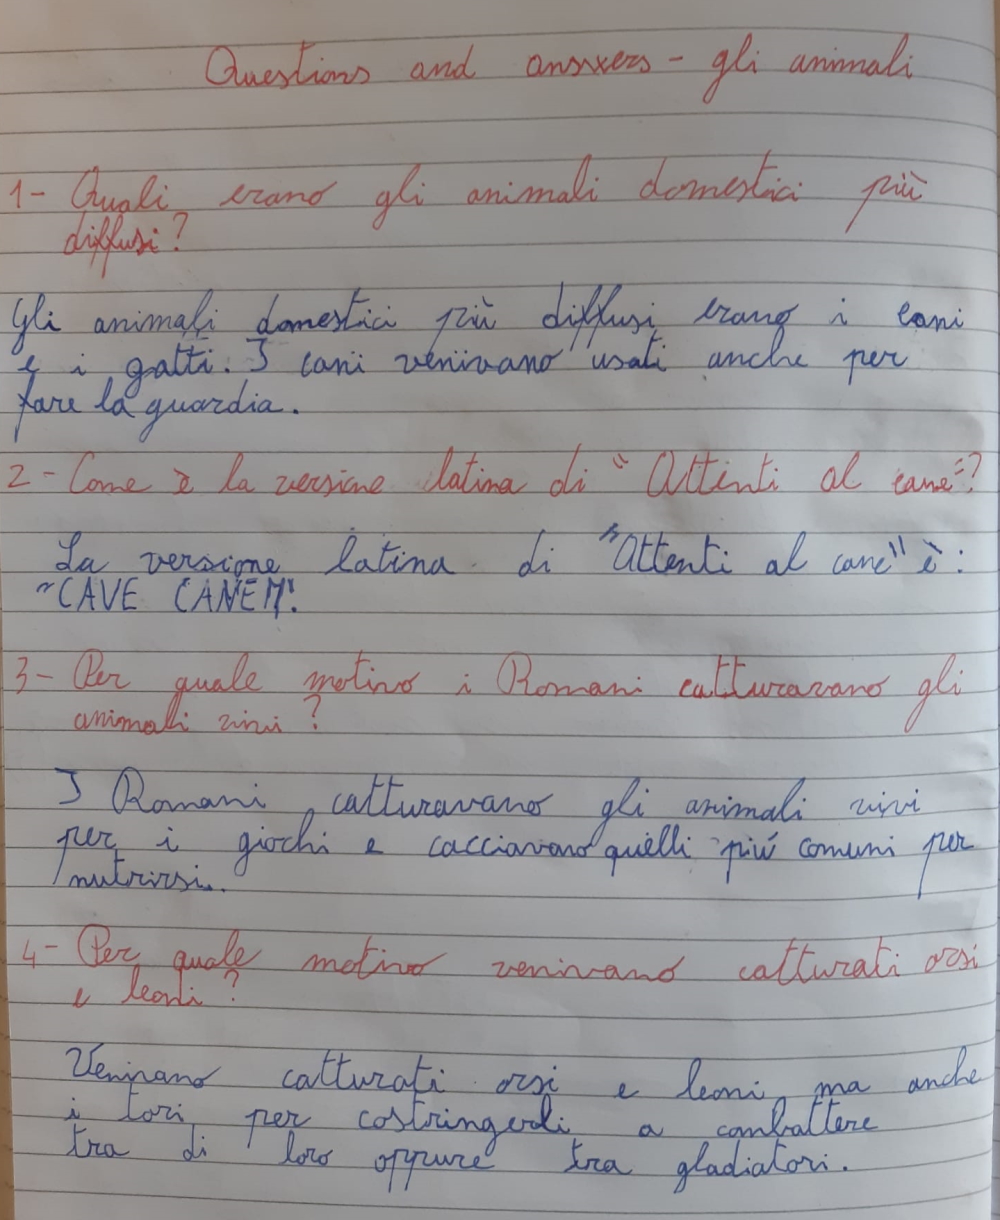 Questions and answers - gli animali
1- Quali erano gli animali domestici più
diffusi?
Gli animali domestici più diffusi erano i cani
e i gatti. I cani venivano usati anche per
fare la guardia.
2- Come è la versione latina di "Attenti al cane"?
La versione latina di "Attenti al cane" è:
"CAVE CANEM".
3- Per quale motivo i Romani catturavano gli
animali vivi?
I Romani catturavano gli animali vivi
per i giochi e cacciavano quelli più comuni per
nutrirsi.
4- Per quale motivo venivano catturati orsi
e leoni?
Venivano catturati orsi e leoni, ma anche
i tori, per costringerli a combattere
tra di loro oppure tra gladiatori.